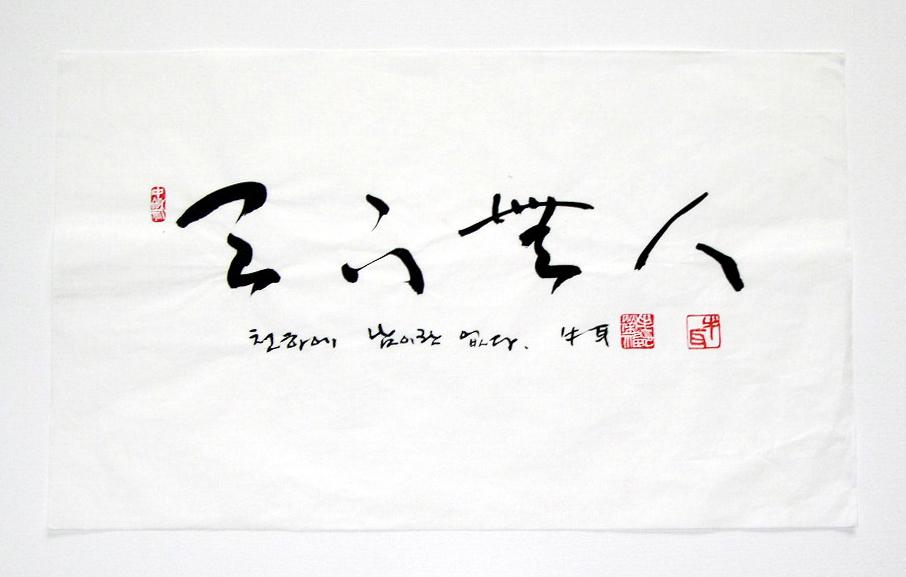 天下無人
천하에 남이란 없다. 牛耳
牛耳